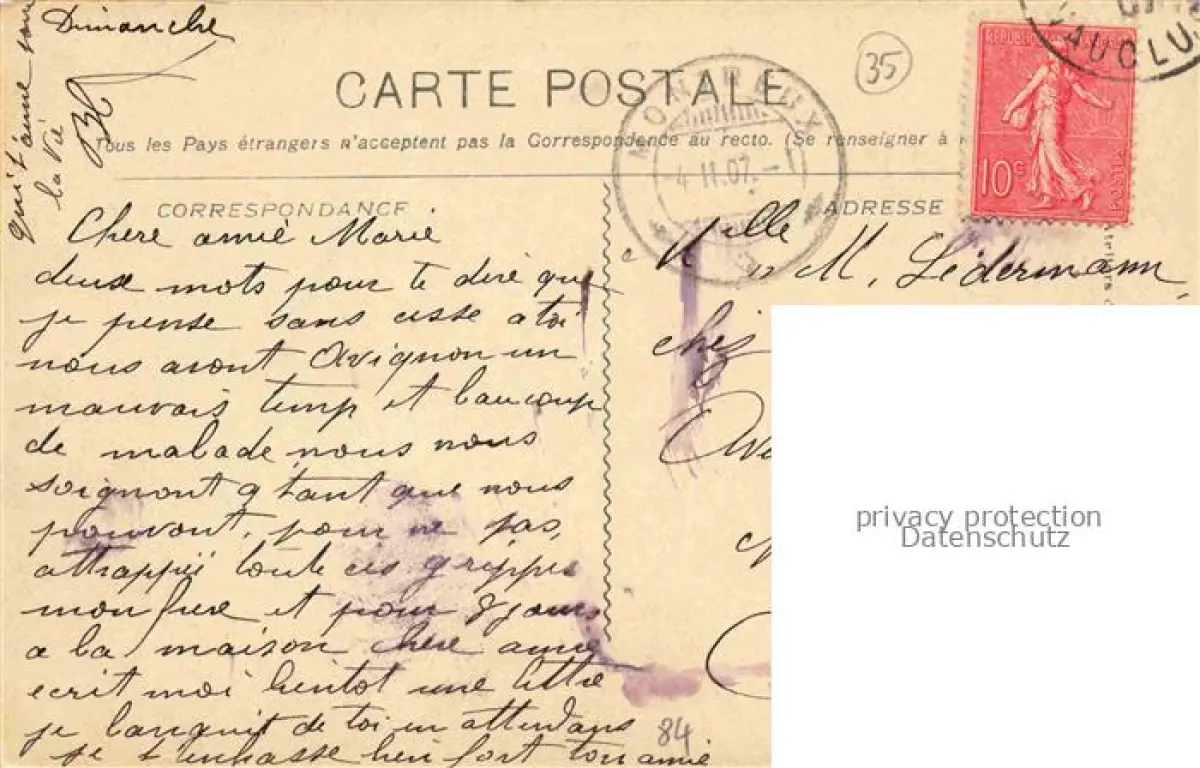 Dimanche
CARTE POSTALE
35
Tous les Pays étrangers n'acceptent pas la Correspondance au recto. (Se renseigner à
REPUBLIQUE
10c
POSTE
VAUCLU
MONTREUX
4 II.07.-1
CORRESPONDANCE
Chere amie Marie
deux mots pour te dire que
je pense sans cesse a toi
nous avont Avignon un
mauvais temp et baucoup
de malade nous nous
soignont tant que nous
pouvont, pour ne pas,
attrappée toute ces grippes
mon frere et pour 8 jours
a la maison chere amie
ecrit moi bientot une lettre
je languit de toi en attendans
je t'enbrasse bien fort ton amie
qui t'aime
la vie
ADRESSE
Melle
M. Ledermann
chez
Av
84
privacy protection
Datenschutz